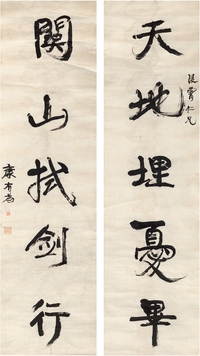 天地埋憂畢
仁兄
關山拭劍行
康有為